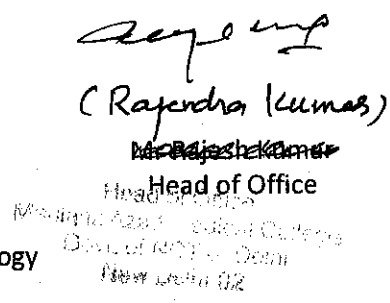 (Rajendra Kumar)
Mr Rajesh Kumar
Head of Office
Head of Office
Maulana Azad Medical College
Govt. of NCT of Delhi
ogy
New Delhi 02